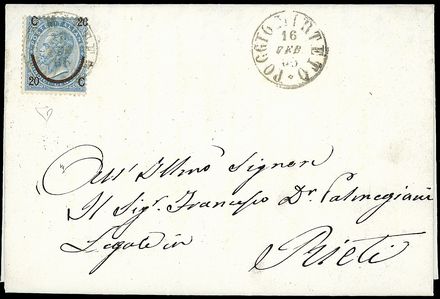 C 20
20 C
POGGIO MIRTETO
16
FEB
All' Illmo Signor
Il Sigr. Francesco Dr. Palmegiani
Legale in
Rieti